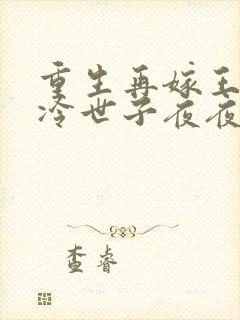 重生再嫁王
冷世子夜夜
查睿